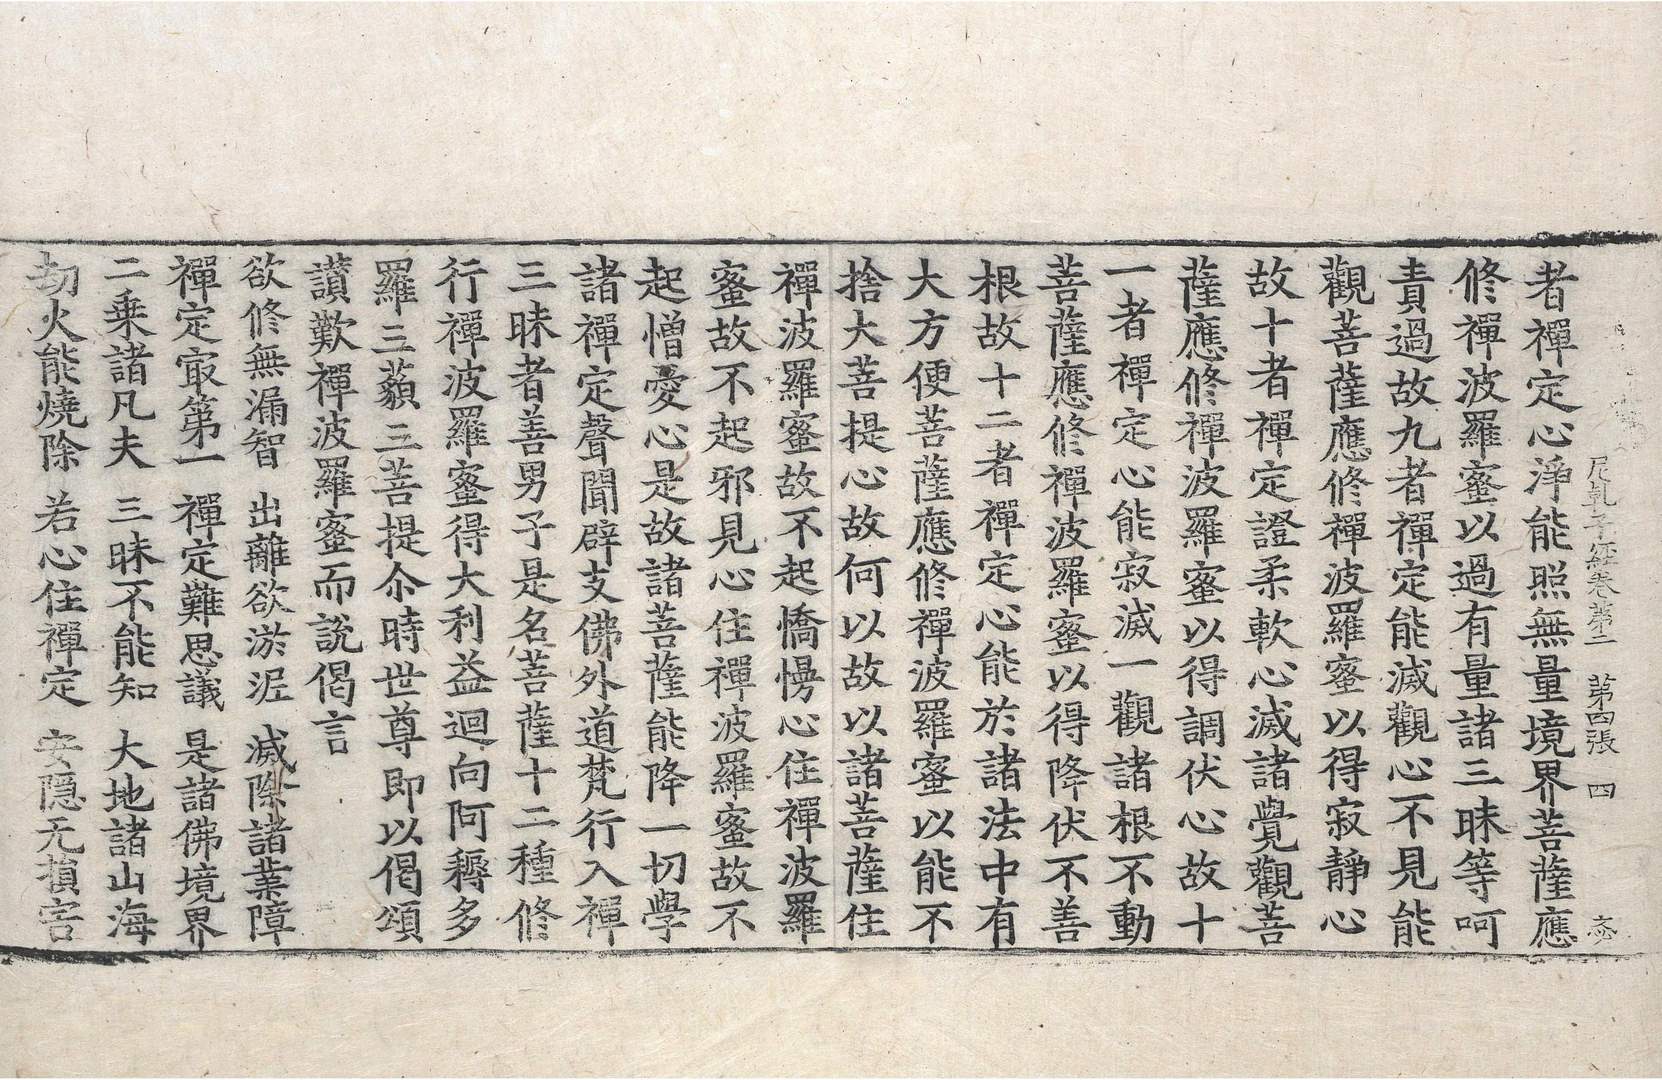 尼乹子經卷第二　第四張　四
者禪定心淨能照無量境界菩薩應
修禪波羅蜜以過有量諸三昧等呵
責過故九者禪定能滅觀心不見能
觀菩薩應修禪波羅蜜以得寂靜心
故十者禪定證柔軟心滅諸覺觀菩
薩應修禪波羅蜜以得調伏心故十
一者禪定心能寂滅一觀諸根不動
菩薩應修禪波羅蜜以得降伏不善
根故十二者禪定心能於諸法中有
大方便菩薩應修禪波羅蜜以能不
捨大菩提心故何以故以諸菩薩住
禪波羅蜜故不起憍慢心住禪波羅
蜜故不起邪見心住禪波羅蜜故不
起憎愛心是故諸菩薩能降一切學
諸禪定聲聞辟支佛外道梵行入禪
三昧者善男子是名菩薩十二種修
行禪波羅蜜得大利益迴向阿耨多
羅三藐三菩提尒時世尊即以偈頌
讚歎禪波羅蜜而說偈言
欲修無漏智　出離欲淤泥　滅除諸業障
禪定㝡第一　禪定難思議　是諸佛境界
二乘諸凡夫　三昧不能知　大地諸山海
劫火能燒除　若心住禪定　安隱无損害